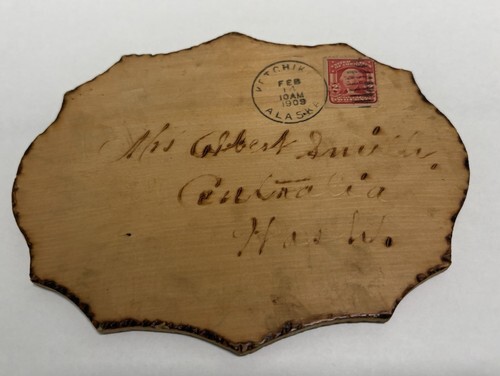 KETCHIK
FEB
10AM
1909
ALASKA
Mrs Albert Smith,
Centralia
Wash.